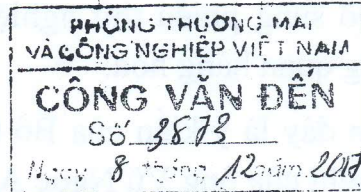 PHÒNG THƯƠNG MẠI
VÀ CÔNG NGHIỆP VIỆT NAM
CÔNG VĂN ĐẾN
Số 3873
Ngày 8 tháng 12 năm 2017